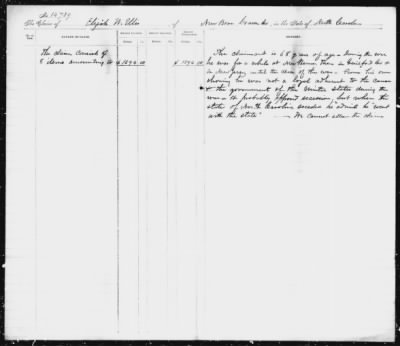 No 14,739
The Claim of Elijah W. Ellis of New Bern Craven Co in the State of North Carolina
NATURE OF CLAIM. AMOUNT CLAIMED. AMOUNT ALLOWED. AMOUNT DISALLOWED. REMARKS.
Dollars. Cts. Dollars. Cts. Dollars. Cts.
The claim consists of
8 items amounting to $ 1294 00 $ 1294 00
The claimant is 68 years of age. During the war
he was for a while at New Berne, then in Guilford Co &
in New Jersey until the close of the war. From his own
showing he was not a loyal adherent to the cause
& the government of the United States during the
war. He probably opposed secession, but when the
state of North Carolina seceded he admits he "went
with the state" — We cannot allow the claim